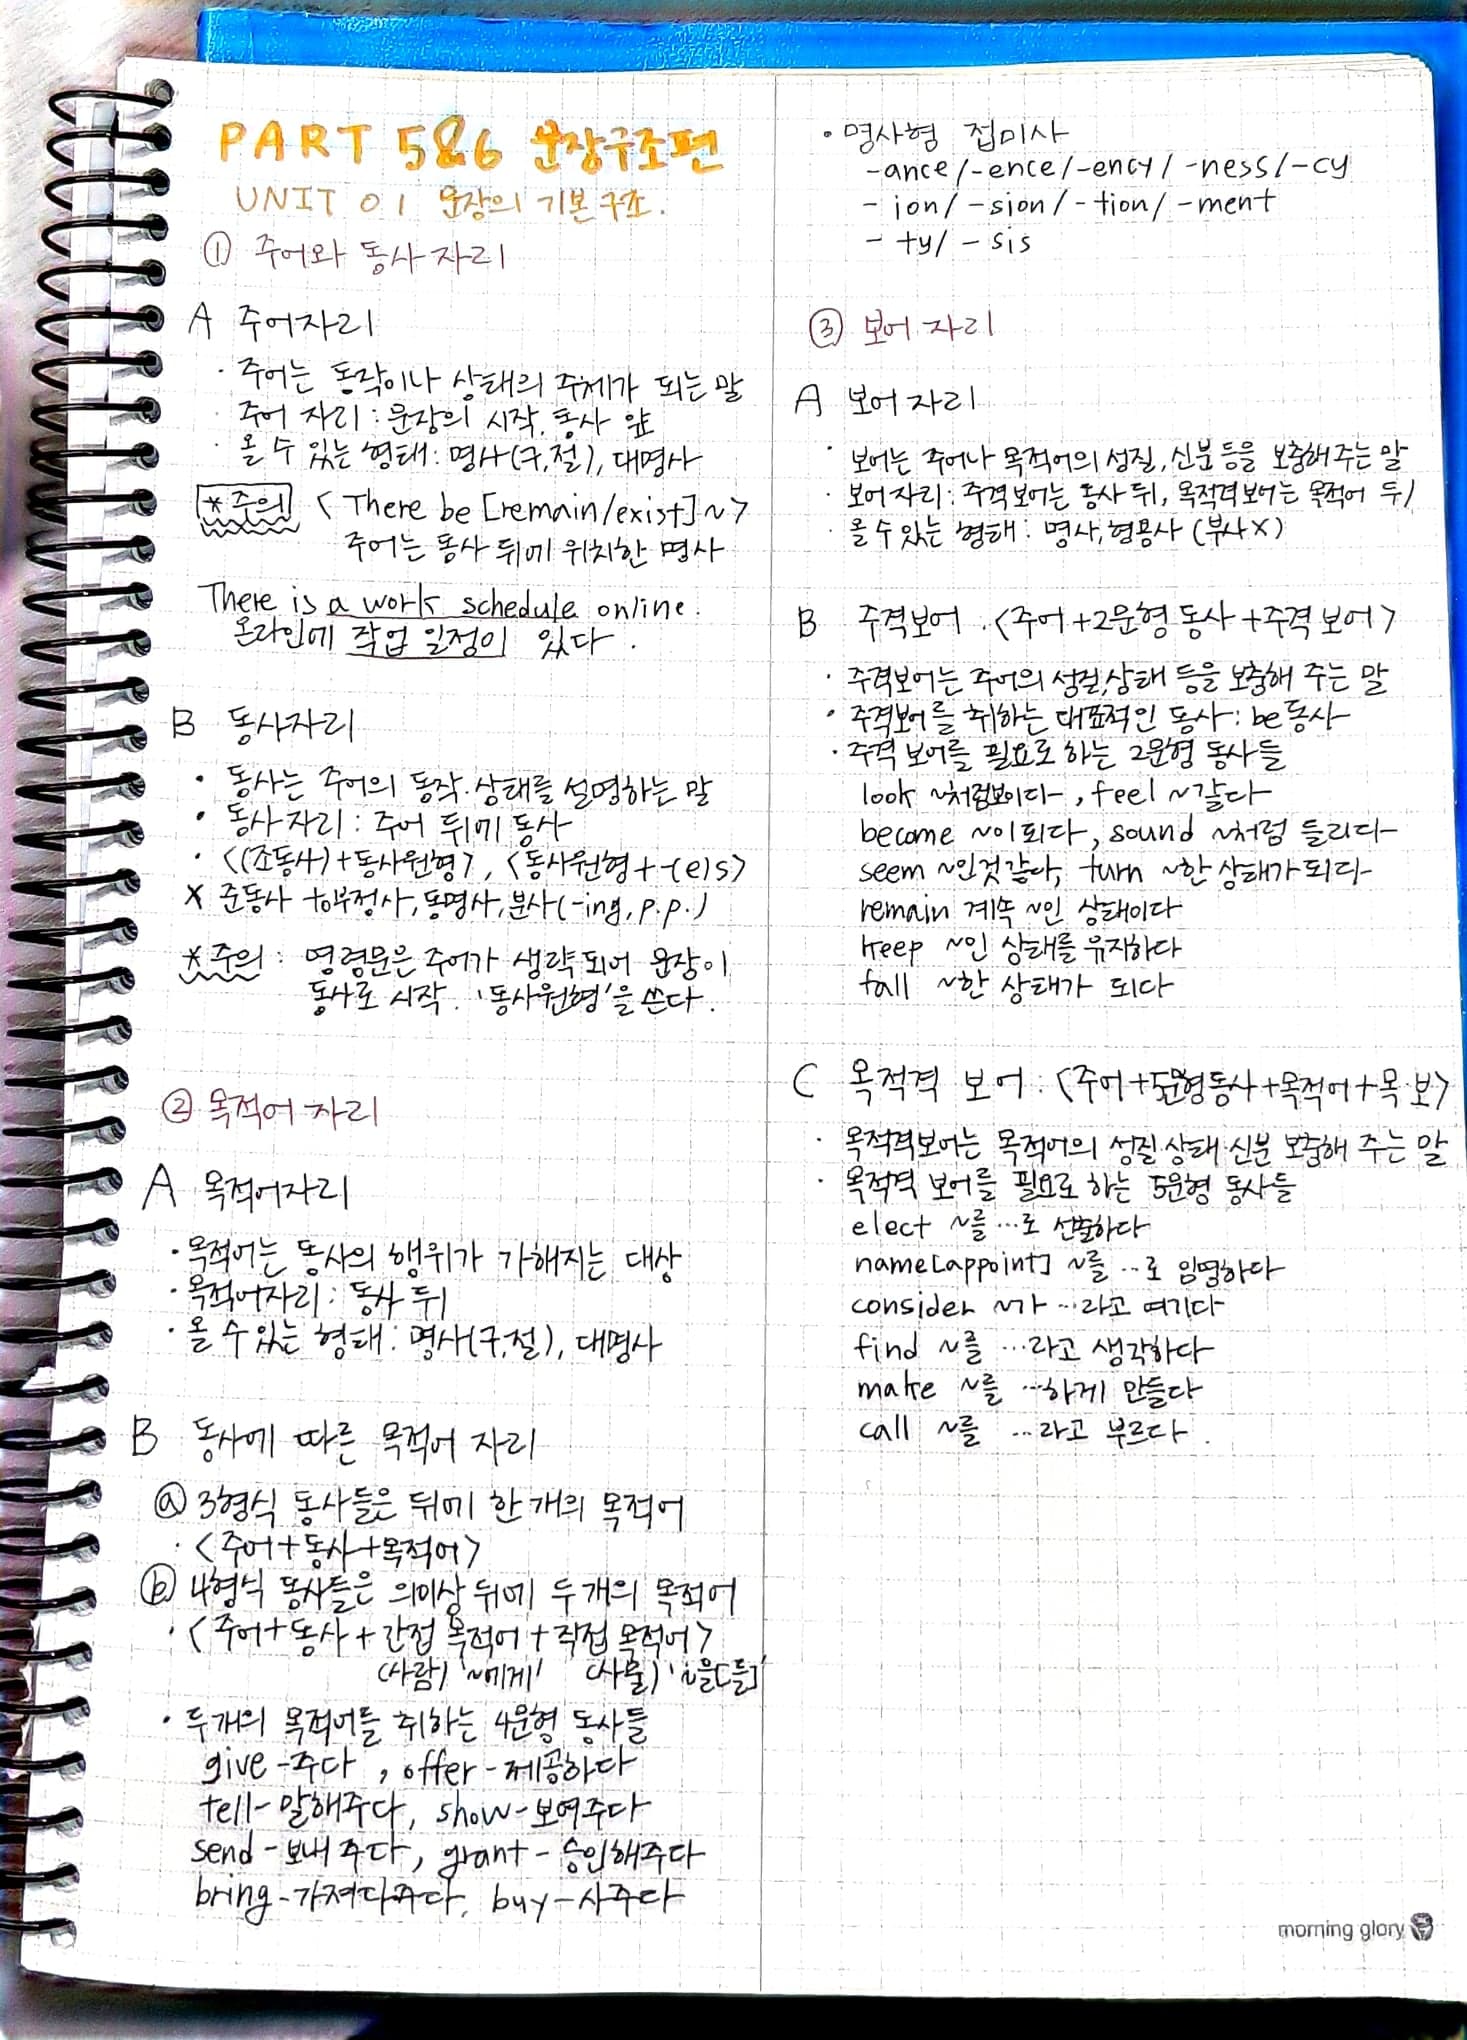 PART 5&6 문장구조편
UNIT 01 문장의 기본 구조.
① 주어와 동사 자리
A 주어자리
· 주어는 동작이나 상태의 주체가 되는 말
· 주어 자리 : 문장의 시작, 동사 앞
· 올 수 있는 형태 : 명사(구,절), 대명사
*주의 < There be [remain/exist] ~ >
주어는 동사 뒤에 위치한 명사
There is a work schedule online.
온라인에 작업 일정이 있다.
B 동사자리
· 동사는 주어의 동작·상태를 설명하는 말
· 동사자리 : 주어 뒤에 동사
· <(조동사)+동사원형>, <동사원형+-(e)s>
X 준동사 to부정사, 동명사, 분사(-ing, p.p.)
*주의 : 명령문은 주어가 생략되어 문장이
동사로 시작. '동사원형'을 쓴다.
② 목적어 자리
A 목적어자리
· 목적어는 동사의 행위가 가해지는 대상
· 목적어자리 : 동사 뒤
· 올 수 있는 형태 : 명사(구,절), 대명사
B 동사에 따른 목적어 자리
ⓐ 3형식 동사들은 뒤에 한 개의 목적어
· <주어+동사+목적어>
ⓑ 4형식 동사들은 의미상 뒤에 두 개의 목적어
· <주어+동사+간접 목적어+직접 목적어>
(사람) '~에게' (사물) '~을[를]'
· 두개의 목적어를 취하는 4문형 동사들
give - 주다, offer - 제공하다
tell - 말해주다, show - 보여주다
send - 보내 주다, grant - 승인해주다
bring - 가져다주다, buy - 사주다
· 명사형 접미사
-ance/-ence/-ency/-ness/-cy
-ion/-sion/-tion/-ment
-ty/-sis
③ 보어 자리
A 보어자리
· 보어는 주어나 목적어의 성질, 신분 등을 보충해 주는 말
· 보어자리 : 주격보어는 동사 뒤, 목적격보어는 목적어 뒤
· 올 수 있는 형태 : 명사, 형용사 (부사X)
B 주격보어 . <주어+2문형 동사+주격 보어>
· 주격보어는 주어의 성질,상태 등을 보충해 주는 말
· 주격보어를 취하는 대표적인 동사 : be동사
· 주격 보어를 필요로 하는 2문형 동사들
look ~처럼보이다, feel ~같다
become ~이 되다, sound ~처럼 들리다
seem ~인것같다, turn ~한 상태가 되다
remain 계속 ~인 상태이다
keep ~인 상태를 유지하다
fall ~한 상태가 되다
C 목적격 보어 : <주어+5문형동사+목적어+목·보>
· 목적격보어는 목적어의 성질·상태·신분 보충해 주는 말
· 목적격 보어를 필요로 하는 5문형 동사들
elect ~를 …로 선출하다
name[appoint] ~를 …로 임명하다
consider ~가 …라고 여기다
find ~를 …라고 생각하다
make ~를 …하게 만들다
call ~를 …라고 부르다.
morning glory